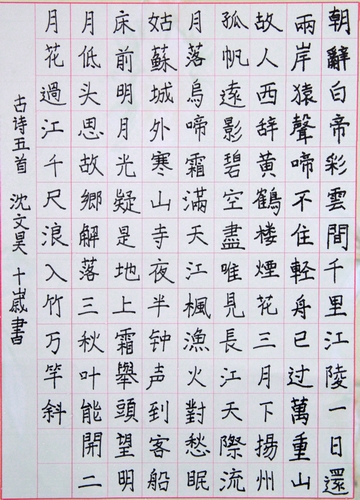 朝辭白帝彩雲間千里江陵一日還
兩岸猿聲啼不住輕舟已过萬重山
故人西辞黄鶴楼煙花三月下揚州
孤帆遠影碧空盡唯見長江天際流
月落烏啼霜滿天江楓漁火對愁眠
姑蘇城外寒山寺夜半钟声到客船
床前明月光疑是地上霜舉頭望明
月低头思故鄉解落三秋叶能開二
月花過江千尺浪入竹万竿斜
古诗五首 沈文昊 十歲書